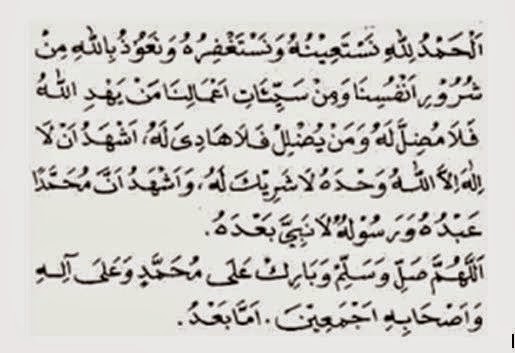 اَلْحَمْدُ لِلّٰهِ نَسْتَعِيْنُهُ وَنَسْتَغْفِرُهُ وَنَعُوْذُ بِاللّٰهِ مِنْ
شُرُوْرِ اَنْفُسِنَا وَمِنْ سَيِّئَاتِ اَعْمَالِنَا مَنْ يَهْدِ اللّٰهُ
فَلَا مُضِلَّ لَهُ وَمَنْ يُضْلِلْ فَلَا هَادِىَ لَهُ، اَشْهَدُ اَنْ لَا
اِلٰهَ اِلاَّ اللّٰهُ وَحْدَهُ لَا شَرِيْكَ لَهُ، وَاَشْهَدُ اَنَّ مُحَمَّدًا
عَبْدُهُ وَرَسُوْلُهُ لَا نَبِيَّ بَعْدَهُ.
اَللّٰهُمَّ صَلِّ وَسَلِّمْ وَبَارِكْ عَلَى مُحَمَّدٍ وَعَلَى آلِهِ
وَاَصْحَابِهِ اَجْمَعِيْنَ. اَمَّا بَعْدُ.